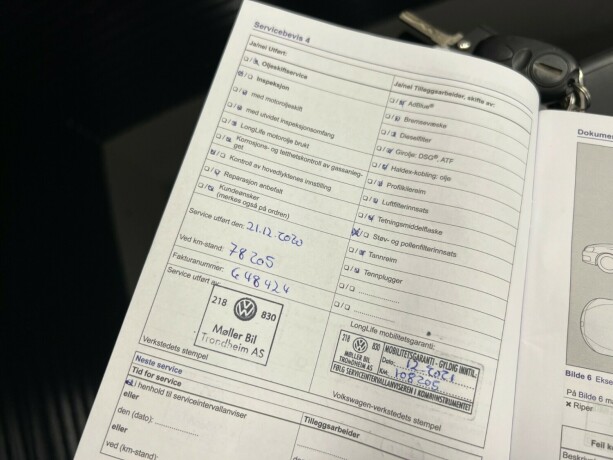 Servicebevis 4
Ja/nei Utført:
Oljeskiftservice
Inspeksjon
med motoroljeskift
med utvidet inspeksjonsomfang
LongLife motorolje brukt
Korrosjons- og tetthetskontroll av gassanleg-
get
Kontroll av hovedlyktenes innstilling
Reparasjon anbefalt
Kundeønsker
(merkes også på ordren)
Service utført den: 21.12.2020
Ved km-stand: 78205
Fakturanummer: 648424
Service utført av:
218 830
Møller Bil
Trondheim AS
Verkstedets stempel
Ja/nei Tilleggsarbeider, skifte av:
AdBlue®
Bremsevæske
Dieselfilter
Girolje: DSG®, ATF
Haldex-kobling: olje
Profilkilereim
Luftfilterinnsats
Tetningsmiddelflaske
Støv- og pollenfilterinnsats
Tannreim
Tennplugger
LongLife mobilitetsgaranti:
218 830
MØLLER BIL
TRONDHEIM AS
MOBILITETSGARANTI - GYLDIG INNTIL
Dato: 12.2021
Km. 108205
FØLG SERVICEINTERVALLANVISEREN I KOMBIINSTRUMENTET
Volkswagen-verkstedets stempel
Neste service
Tid for service
I henhold til serviceintervallanviser
eller
den (dato):
eller
ved (km-stand):
Tilleggsarbeider
Dokume
Bilde 6 Ekse
På Bilde 6 m
× Riper
Felt k
Beskriv